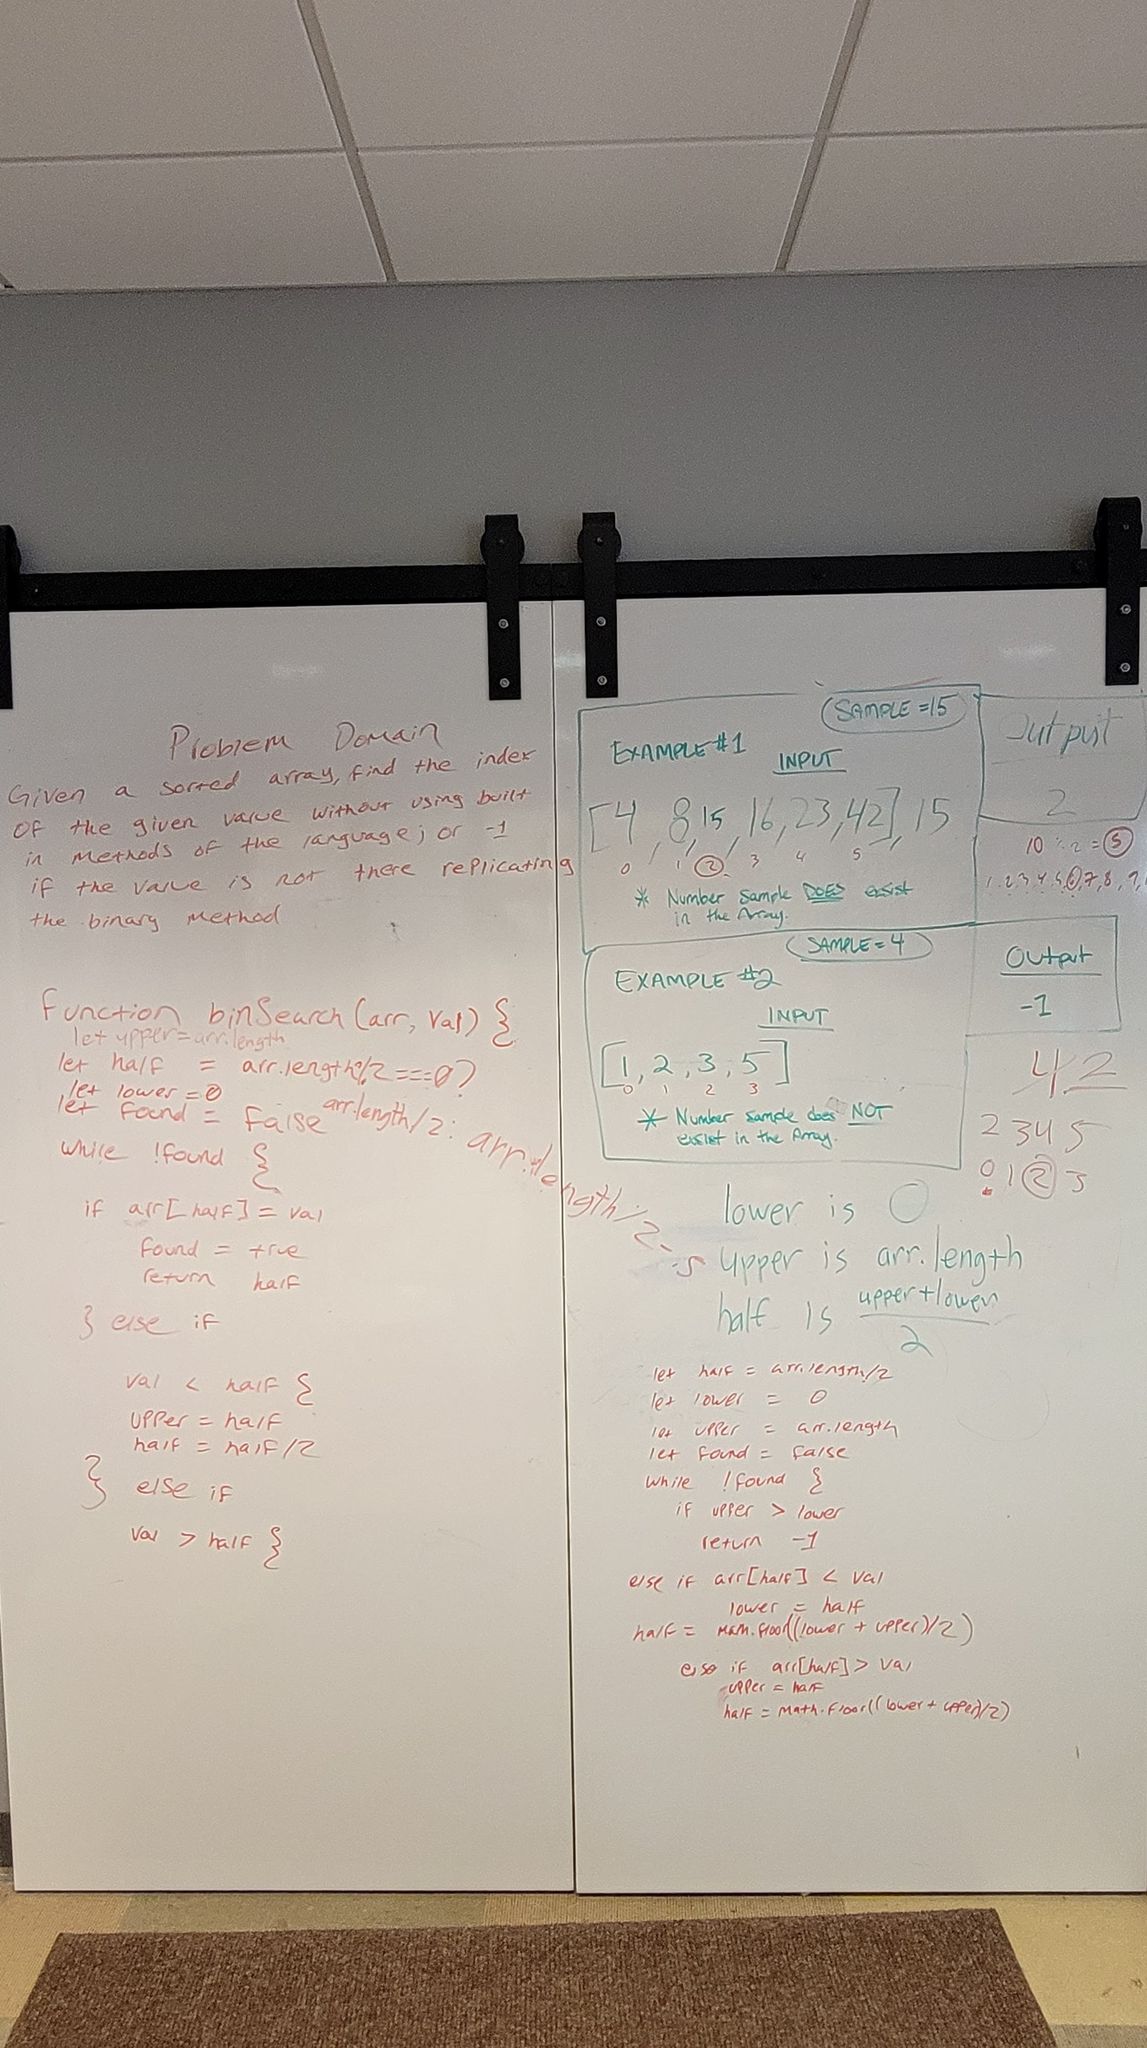 Problem Domain
Given a sorted array, find the index
of the given value without using built
in methods of the language; or -1
if the value is not there replicating
the binary method
function binSearch(arr, val) {
let upper = arr.length
let half = arr.length%2===0?
let lower = 0
arr.length/2: arr.length/2-.5
let found = false
while !found {
if arr[half] = val
found = true
return half
} else if
val < half {
upper = half
half = half/2
} else if
val > half {
SAMPLE = 15
EXAMPLE #1
INPUT
[4, 8, 15, 16, 23, 42], 15
0 1 2 3 4 5
* Number sample DOES exist
in the Array.
Output
2
10 % 2 = 5
SAMPLE = 4
EXAMPLE #2
INPUT
[1, 2, 3, 5]
0 1 2 3
* Number sample does NOT
exist in the Array.
Output
-1
42
2 3 4 5
0 1 2 3
lower is 0
upper is arr.length
half is upper+lower
2
let half = arr.length/2
let lower = 0
let upper = arr.length
let found = false
while !found {
if upper > lower
return -1
else if arr[half] < val
lower = half
half = Math.floor((lower + upper)/2)
else if arr[half] > val
upper = half
half = Math.floor((lower + upper)/2)